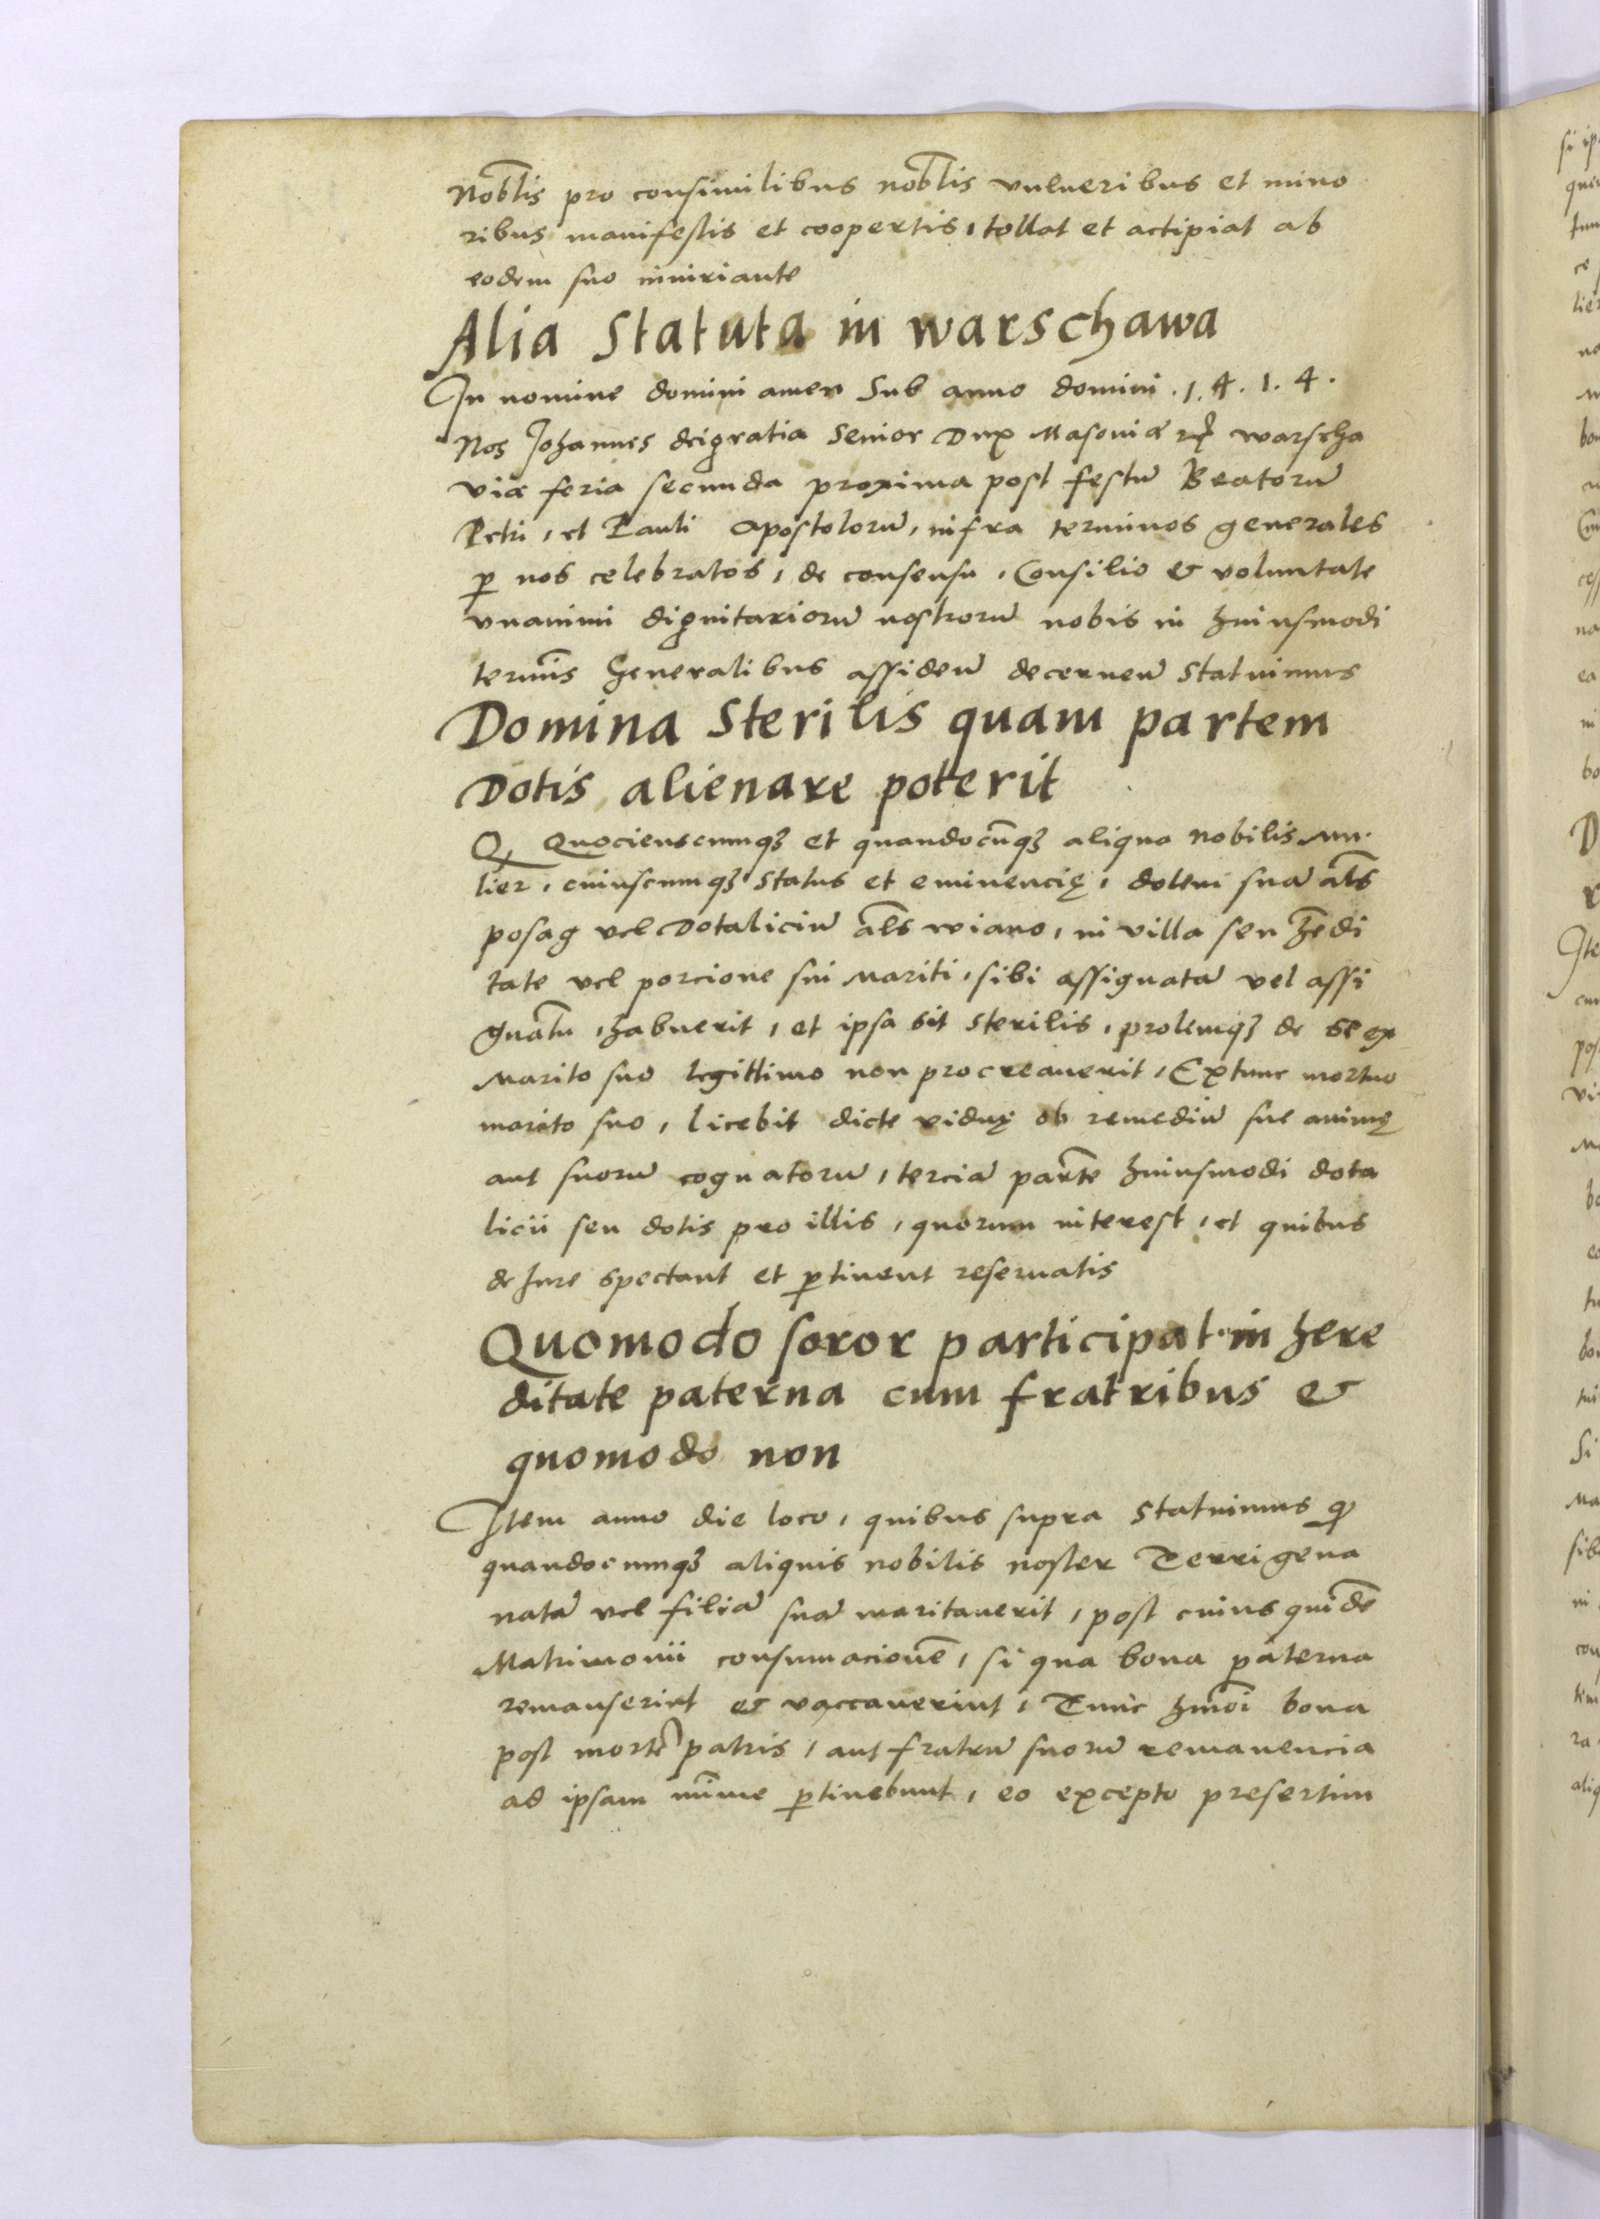 Nobĺis pro consimilibus nobĺis vulneribus et mino
ribus manifestis et coopertis, tollat et accipiat ab
eodem suo iniuriante
Alia Statuta in warschawa
In nomine domini amen Sub anno domini .1.4.1.4.
Nos Johannes dei gratia Senior Dux Masoviæ warscha
viæ feria secunda proxima post festū Beatorū
Petri, et Pauli Apostolorū, infra terminos generales
ꝑ nos celebratos, de consensu, Consilio & voluntate
vnanimi dignitariorū nostrorū nobis in huiusmodi
termīs Generalibus assideñ decerneñ Statuimus
Domina Sterilis quam partem
Dotis alienare poterit
Q Quocienscumqꝫ et quandocūqꝫ aliqua Nobilis Mu
lier, cuiuscumqꝫ status et eminencię, dotem suā als̄
posag vel Dotaliciū als̄ wiano, in villa seu hēdi
tate vel porcione sui Mariti, sibi assignatā vel assi
gnatū, habuerit, et ipsa sit Sterilis, prolemqꝫ de se ex
Marito suo legittimo non procreauerit, Extunc mortuo
marito suo, licebit dicte viduę ob remediū sue animę
aut suorū cognatorū, terciā partē huiusmodi dota
licii seu dotis pro illis, quorum interest, et quibus
de Jure spectant et ꝑtinent reseruatis
Quomodo soror participat in here
ditate paterna cum fratribus &
quomodo non
Item anno die loco, quibus supra Statuimus ꝙ
quandocumqꝫ aliquis nobilis noster Terrigena
natā vel filiā suā maritauerit, post cuius quidē
Matrimonii consumacionē, si qua bona paterna
remanserint & vaccauerint, Tunc hm̄oi bona
post mortē patris, aut fratrū suorū remanencia
ad ipsam mīme ꝑtinebunt, eo excepto presertim